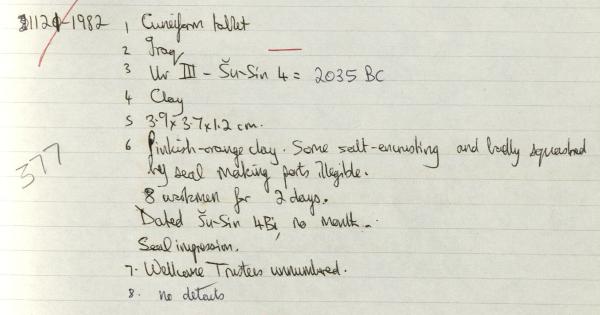 1120-1982 1 Cuneiform tablet
2 Iraq
3 Ur III - Šu-Sin 4 = 2035 BC
4 Clay
5 3.9 x 3.7 x 1.2 cm.
6 Pinkish-orange clay. Some salt-encrusting and badly squashed
by seal making parts illegible.
8 workmen for 2 days.
Dated Šu-Sin 4Bi, no month.
Seal impression.
377
7. Wellcome Trustees unnumbered.
8. no details